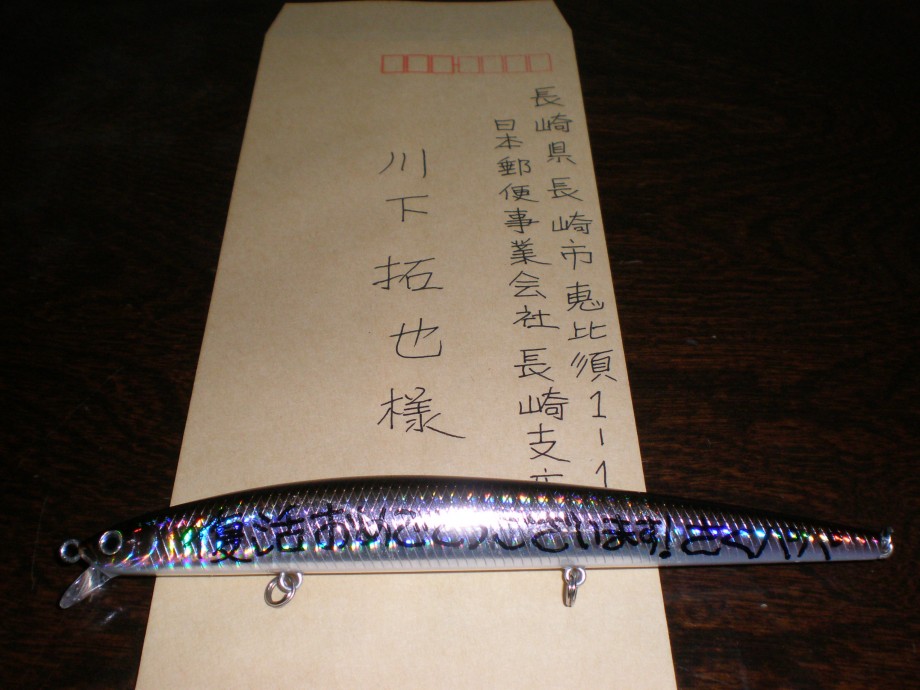 長崎県長崎市恵比須1-1
日本郵便事業会社 長崎支店
川下拓也様
復活おめでとうございます!たくパパ